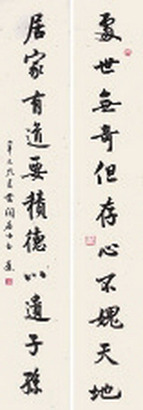 處世無奇但存心不愧天地
居家有道要積德以遺子孫